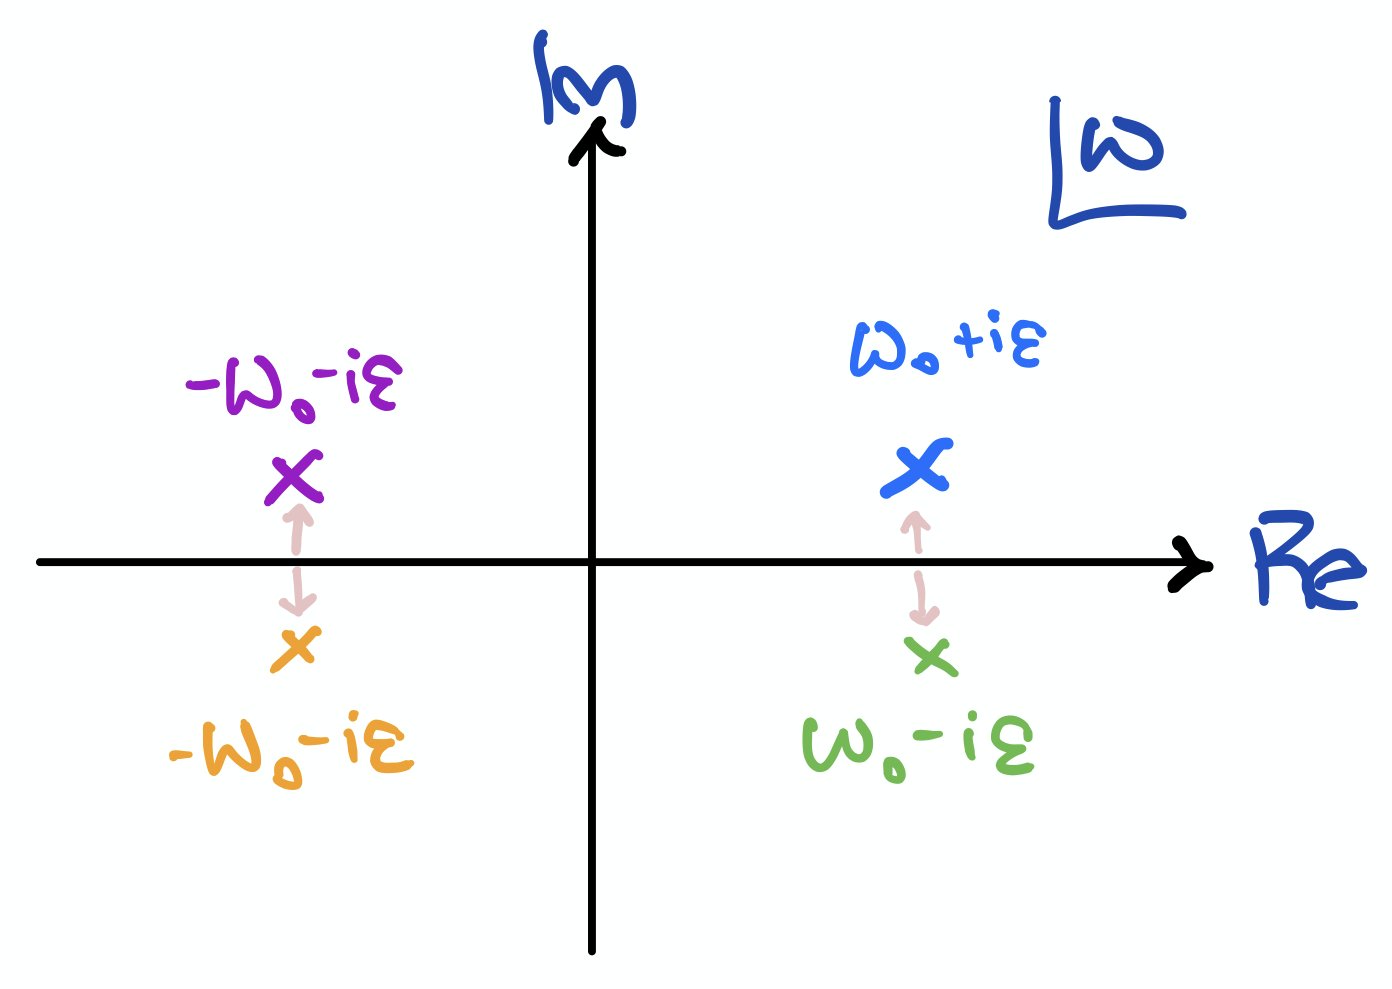 Im
ω
ω₀+iε
-ω₀-iε
Re
-ω₀-iε
ω₀-iε